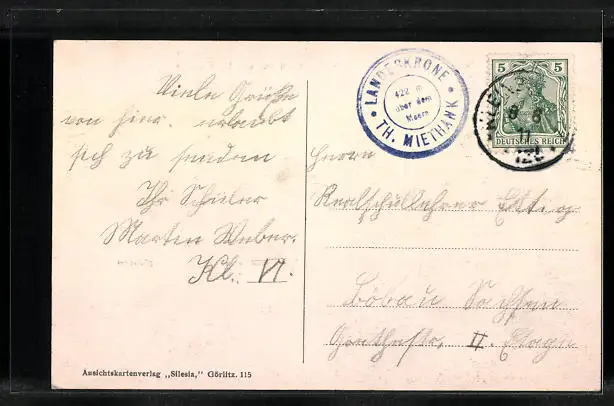 Viele Grüße
von hier erlaubt
sich zu senden
Ihr Schüler
Marten Weber.
Kl. VI.
Ansichtskartenverlag „Silesia,“ Görlitz. 115
LANDESKRONE
422 m
über dem
Meere
TH. MIETHANK
5 5
DEUTSCHES REICH
8 8
11
Herrn
Realschullehrer
Löbau Sachsen
Goethestr. II. Etage